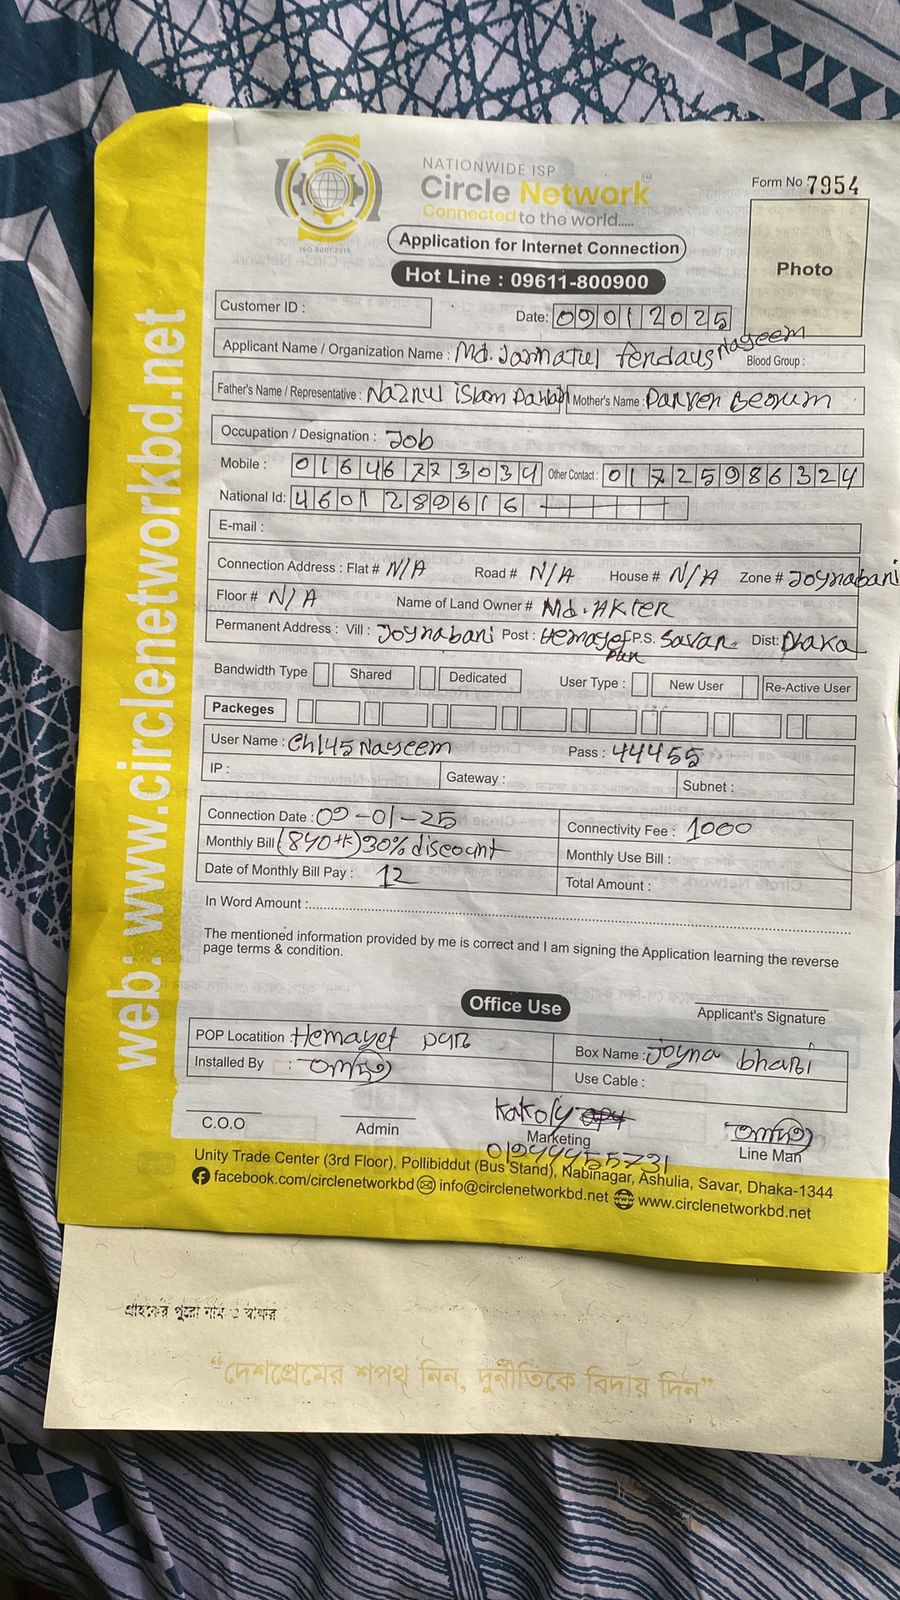 NATIONWIDE ISP
Circle Network TM
Connected to the world.....
ISO 9001:2015
Form No 7954
Application for Internet Connection
Hot Line : 09611-800900
Photo
Customer ID :
Date: 09012025
Applicant Name / Organization Name : Md. Jannatul ferdaus Nayeem Blood Group :
Father's Name / Representative : Naznul islam Mother's Name : Parven Begum
Occupation / Designation : Job
Mobile : 01646773034 Other Contact : 01725986324
National Id: 4601289616
E-mail :
Connection Address : Flat # N/A Road # N/A House # N/A Zone # Joynabari
Floor # N/A Name of Land Owner # Md. Akter
Permanent Address : Vill : Joynabari Post : Hemayet pur P.S. Savar Dist: Dhaka
Bandwidth Type Shared Dedicated User Type : New User Re-Active User
Packeges
User Name : Ch145Nayeem Pass : 44455
IP : Gateway : Subnet :
Connection Date : 09-01-25 Connectivity Fee : 1000
Monthly Bill (840tk) 30% discount Monthly Use Bill :
Date of Monthly Bill Pay : 12 Total Amount :
In Word Amount :
The mentioned information provided by me is correct and I am signing the Application learning the reverse
page terms & condition.
Office Use
Applicant's Signature
POP Locatition : Hemayet pur Box Name : Joyna bhari
Installed By : Use Cable :
C.O.O Admin Kakoly Marketing Line Man
01944455731
Unity Trade Center (3rd Floor), Pollibiddut (Bus Stand), Nabinagar, Ashulia, Savar, Dhaka-1344
facebook.com/circlenetworkbd info@circlenetworkbd.net www.circlenetworkbd.net
web: www.circlenetworkbd.net
গ্রাহকের পুরো নাম ও স্বাক্ষর
“দেশপ্রেমের শপথ নিন, দুর্নীতিকে বিদায় দিন”